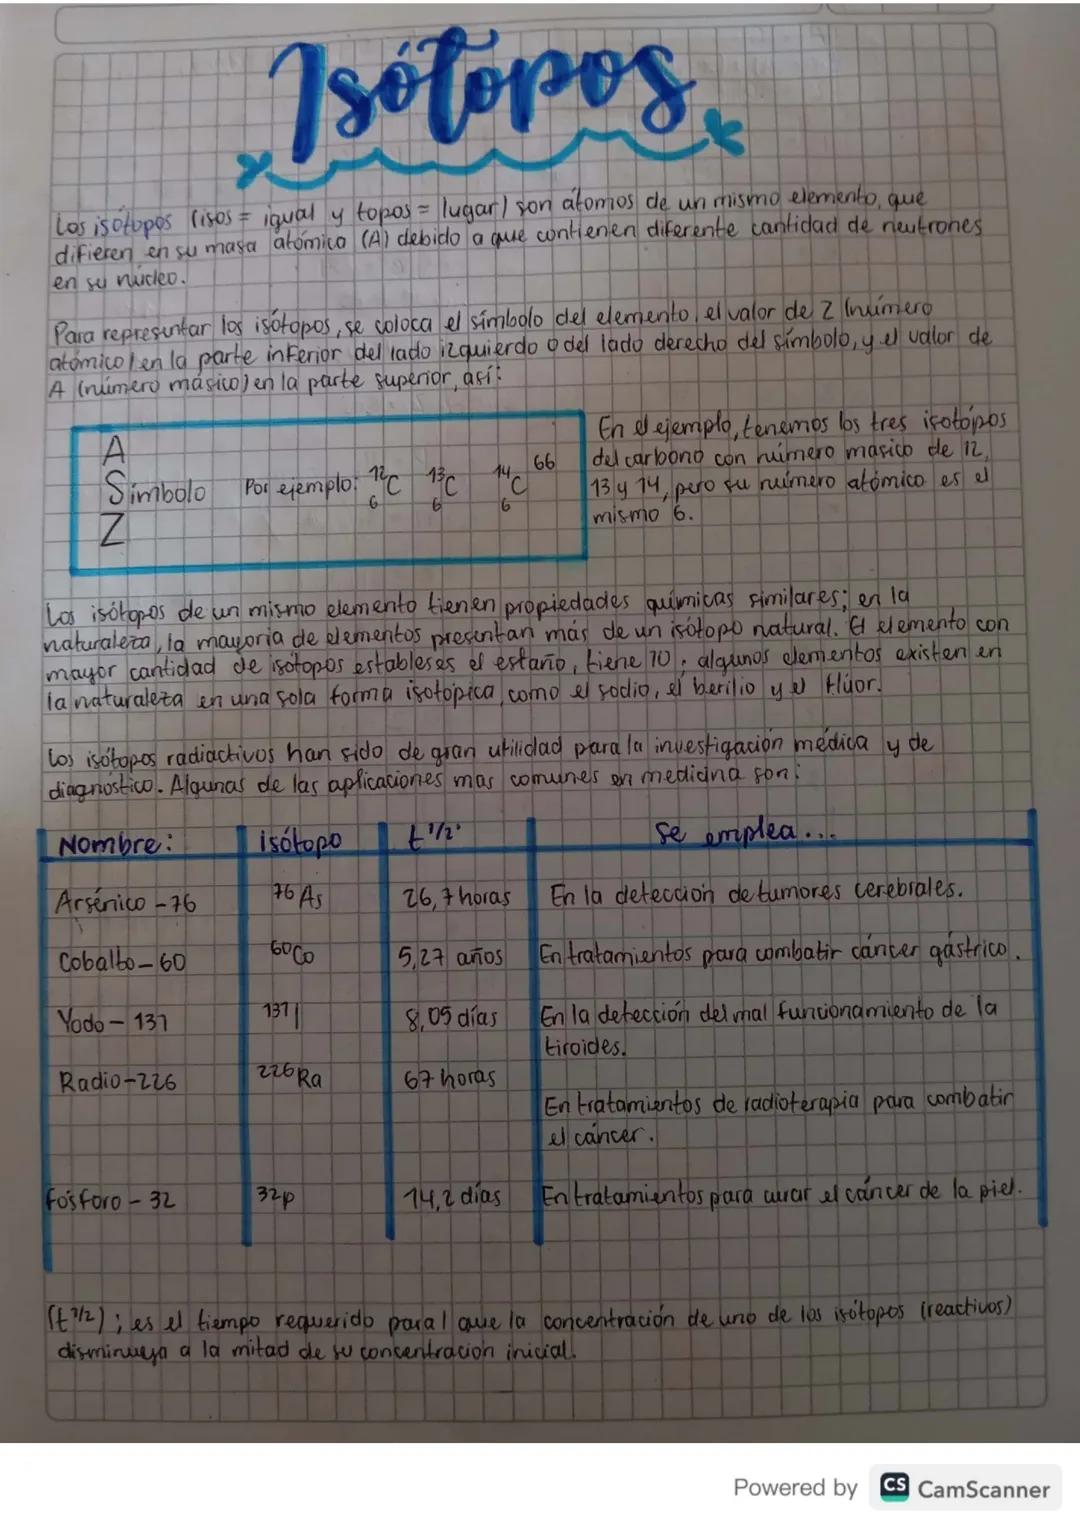 Isótopos
Los isótopos (isos = igual y topos = lugar) son átomos de un mismo elemento, que
difieren en su masa atómica (A) debido a que contienen diferente cantidad de neutrones
en su núcleo.
Para representar los isótopos, se coloca el símbolo del elemento, el valor de Z (número
atómico) en la parte inferior del lado izquierdo o del lado derecho del símbolo, y el valor de
A (número másico) en la parte superior, así:
A
Símbolo Por ejemplo: ¹²₆C ¹³₆C ¹⁴₆C ⁶⁶
Z
En el ejemplo, tenemos los tres isotópos
del carbono con número masico de 12,
13 y 14, pero su número atómico es el
mismo 6.
Los isótopos de un mismo elemento tienen propiedades químicas similares; en la
naturaleza, la mayoria de elementos presentan más de un isótopo natural. El elemento con
mayor cantidad de isótopos estableses el estaño, tiene 10; algunos elementos existen en
la naturaleza en una sola forma isotópica, como el sodio, el berilio y el flúor.
Los isótopos radiactivos han sido de gran utilidad para la investigación médica y de
diagnóstico. Algunas de las aplicaciones mas comunes en medicina son:
Nombre: isótopo t¹/² Se emplea...
Arsénico - 76 ⁷⁶As 26,7 horas En la detección de tumores cerebrales.
Cobalto - 60 ⁶⁰Co 5,27 años En tratamientos para combatir cáncer gástrico.
Yodo - 131 ¹³¹I 8,05 días En la detección del mal funcionamiento de la
tiroides.
Radio-226 ²²⁶Ra 67 horas
En tratamientos de radioterapia para combatir
el cáncer.
Fósforo - 32 ³²P 14,2 días En tratamientos para curar el cáncer de la piel.
(t¹/²); es el tiempo requerido para que la concentración de uno de los isótopos (reactivos)
disminuya a la mitad de su concentración inicial.
Powered by CS CamScanner